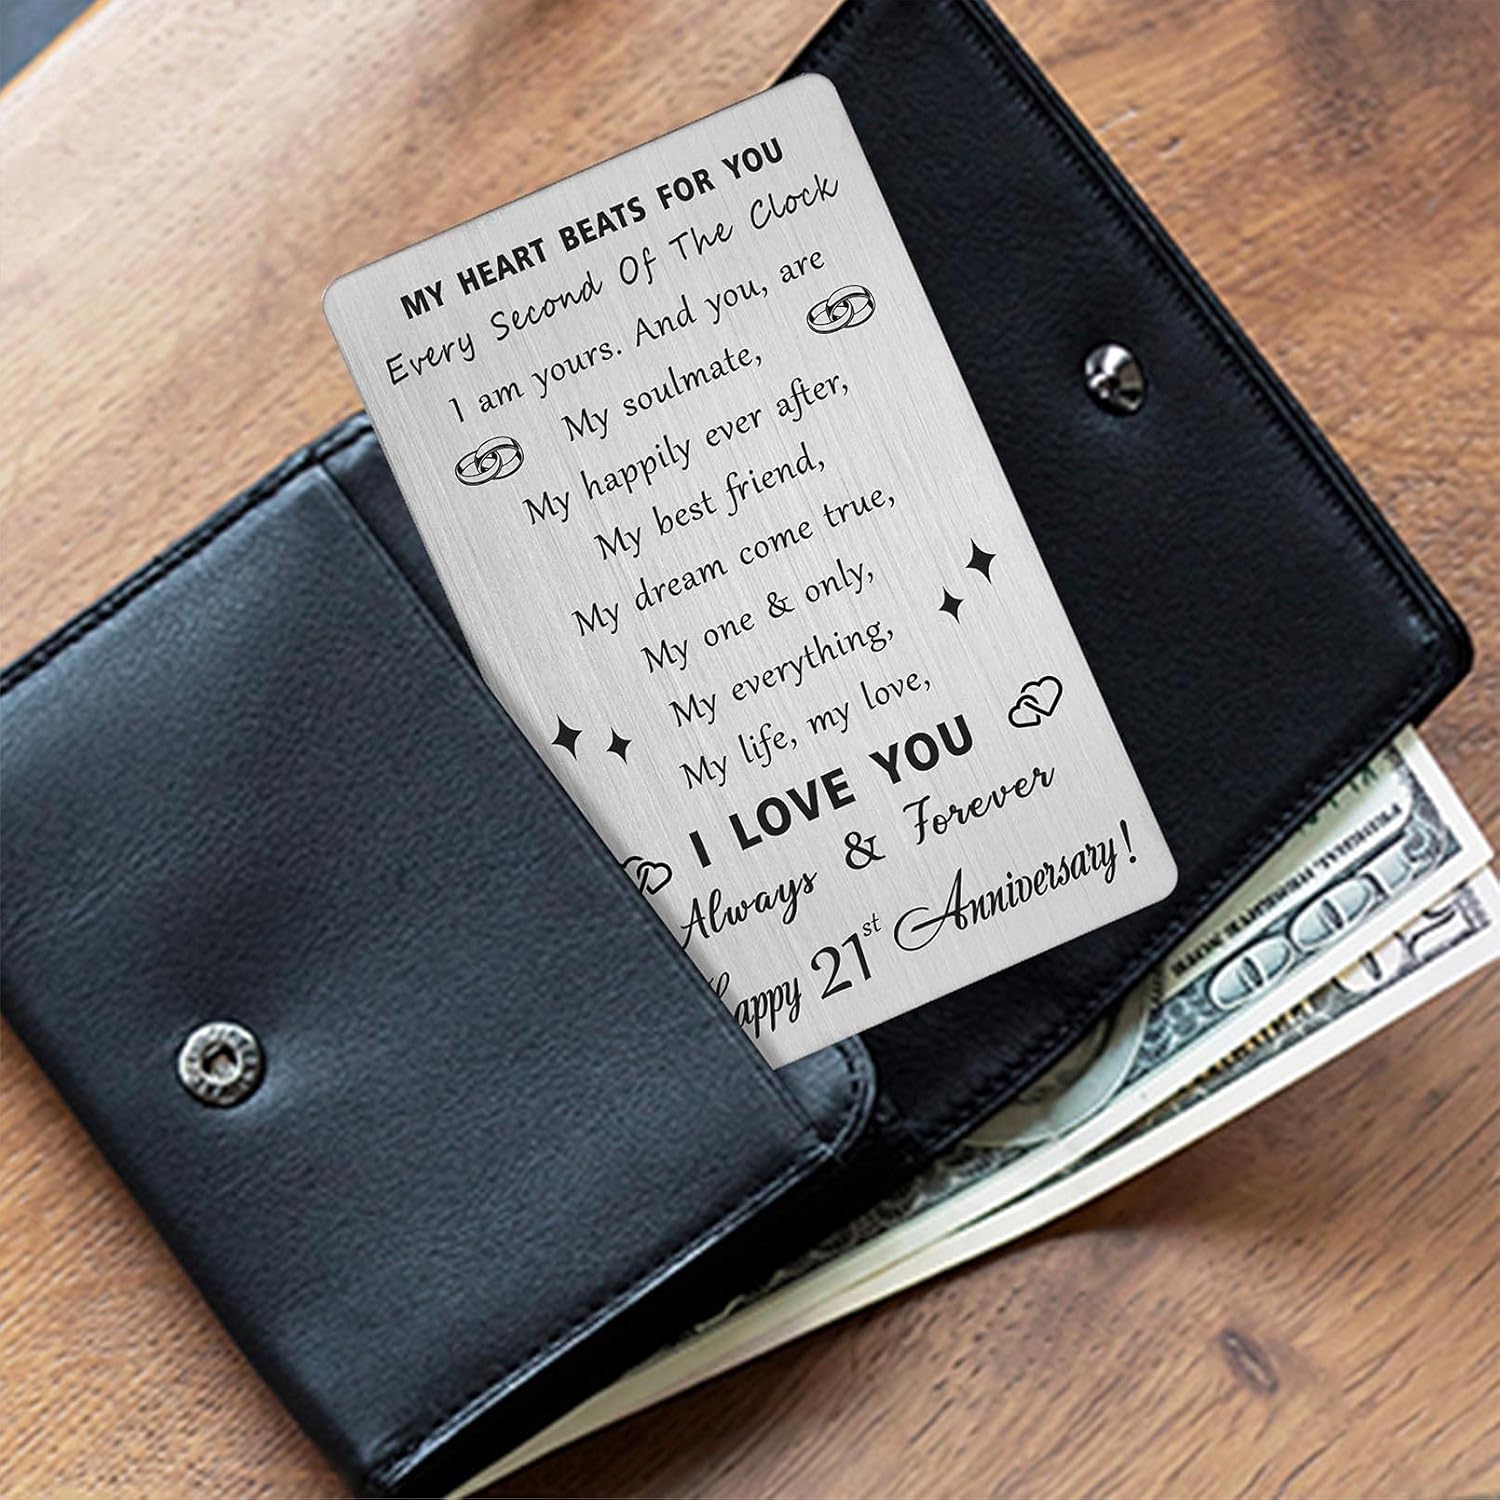 MY HEART BEATS FOR YOU
Every Second Of The Clock
I am yours. And you, are
My soulmate,
My happily ever after,
My best friend,
My dream come true,
My one & only,
My everything,
My life, my love,
I LOVE YOU
Always & Forever
Happy 21st Anniversary!
FEDERAL RESERVE NOTE